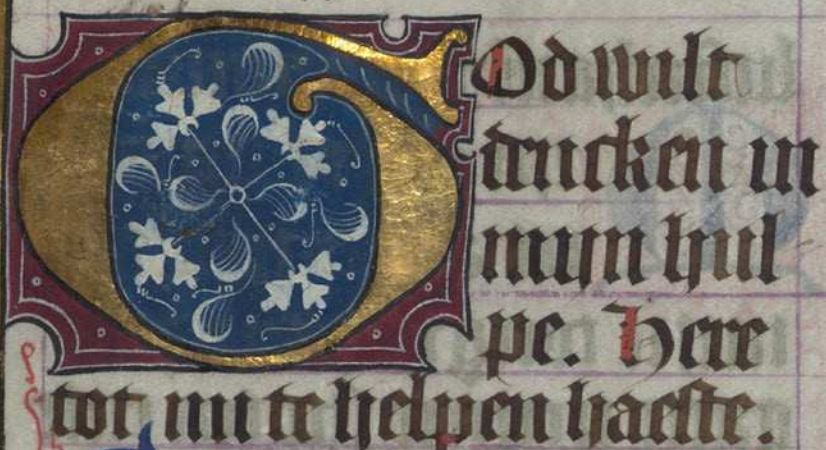 GOd wilt
dencken in
mijn hul
pe. Here
tot mi te helpen haeste.